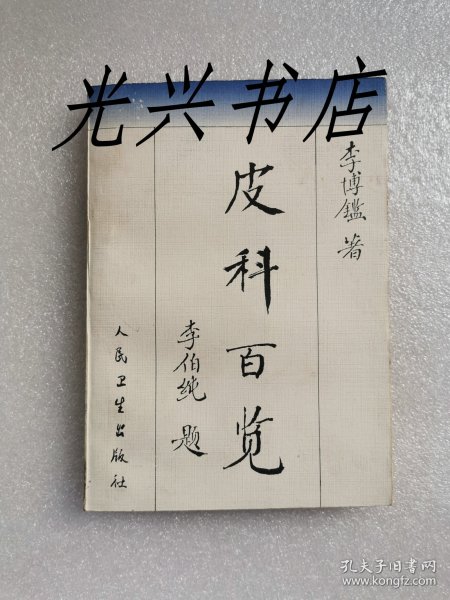 光兴书店
李博鑑 著
皮科百览
李伯纯 题
人民卫生出版社
孔夫子旧书网
www.kongfz.com